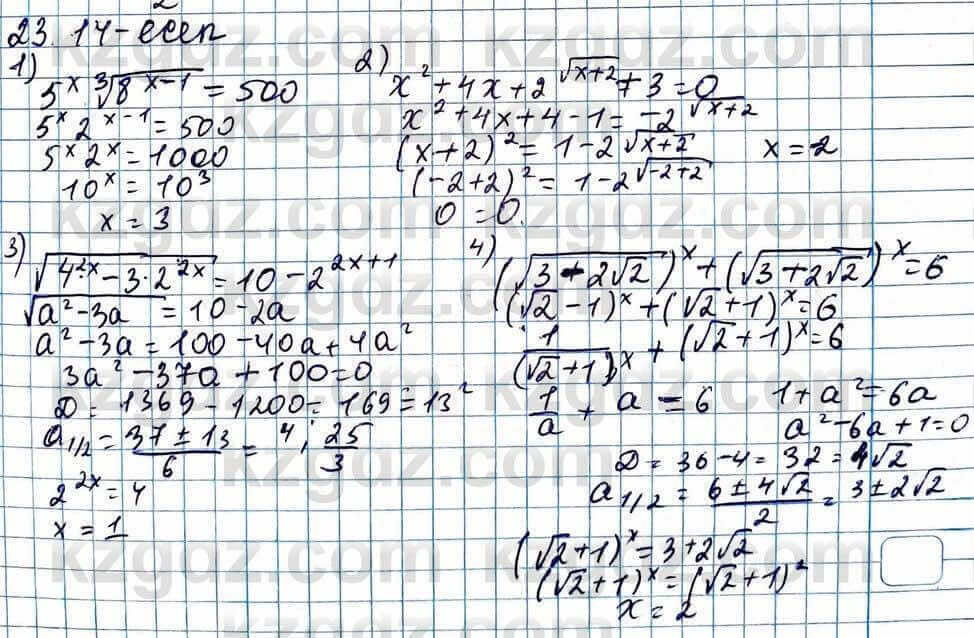 23.14-есеп
1)
5^x ∛(8^(x-1)) = 500
5^x 2^(x-1) = 500
5^x 2^x = 1000
10^x = 10^3
x = 3
2)
x^2 + 4x + 2^(√(x+2)) + 3 = 0
x^2 + 4x + 4 - 1 = -2^(√(x+2))
(x+2)^2 = 1 - 2^(√(x+2)) x = -2
(-2+2)^2 = 1 - 2^(√(-2+2))
0 = 0.
3)
√(4^(2x) - 3·2^(2x)) = 10 - 2^(2x+1)
√(a^2 - 3a) = 10 - 2a
a^2 - 3a = 100 - 40a + 4a^2
3a^2 - 37a + 100 = 0
D = 1369 - 1200 = 169 = 13^2
a_1/2 = (37 ± 13)/6 = 4; 25/3
2^(2x) = 4
x = 1
4)
(√(3 - 2√2))^x + (√(3 + 2√2))^x = 6
(√2 - 1)^x + (√2 + 1)^x = 6
1/(√2 + 1)^x + (√2 + 1)^x = 6
1/a + a = 6 1 + a^2 = 6a
a^2 - 6a + 1 = 0
D = 36 - 4 = 32 = 4√2
a_1/2 = (6 ± 4√2)/2 = 3 ± 2√2
(√2 + 1)^x = 3 + 2√2
(√2 + 1)^x = (√2 + 1)^2
x = 2
kzgdz.com